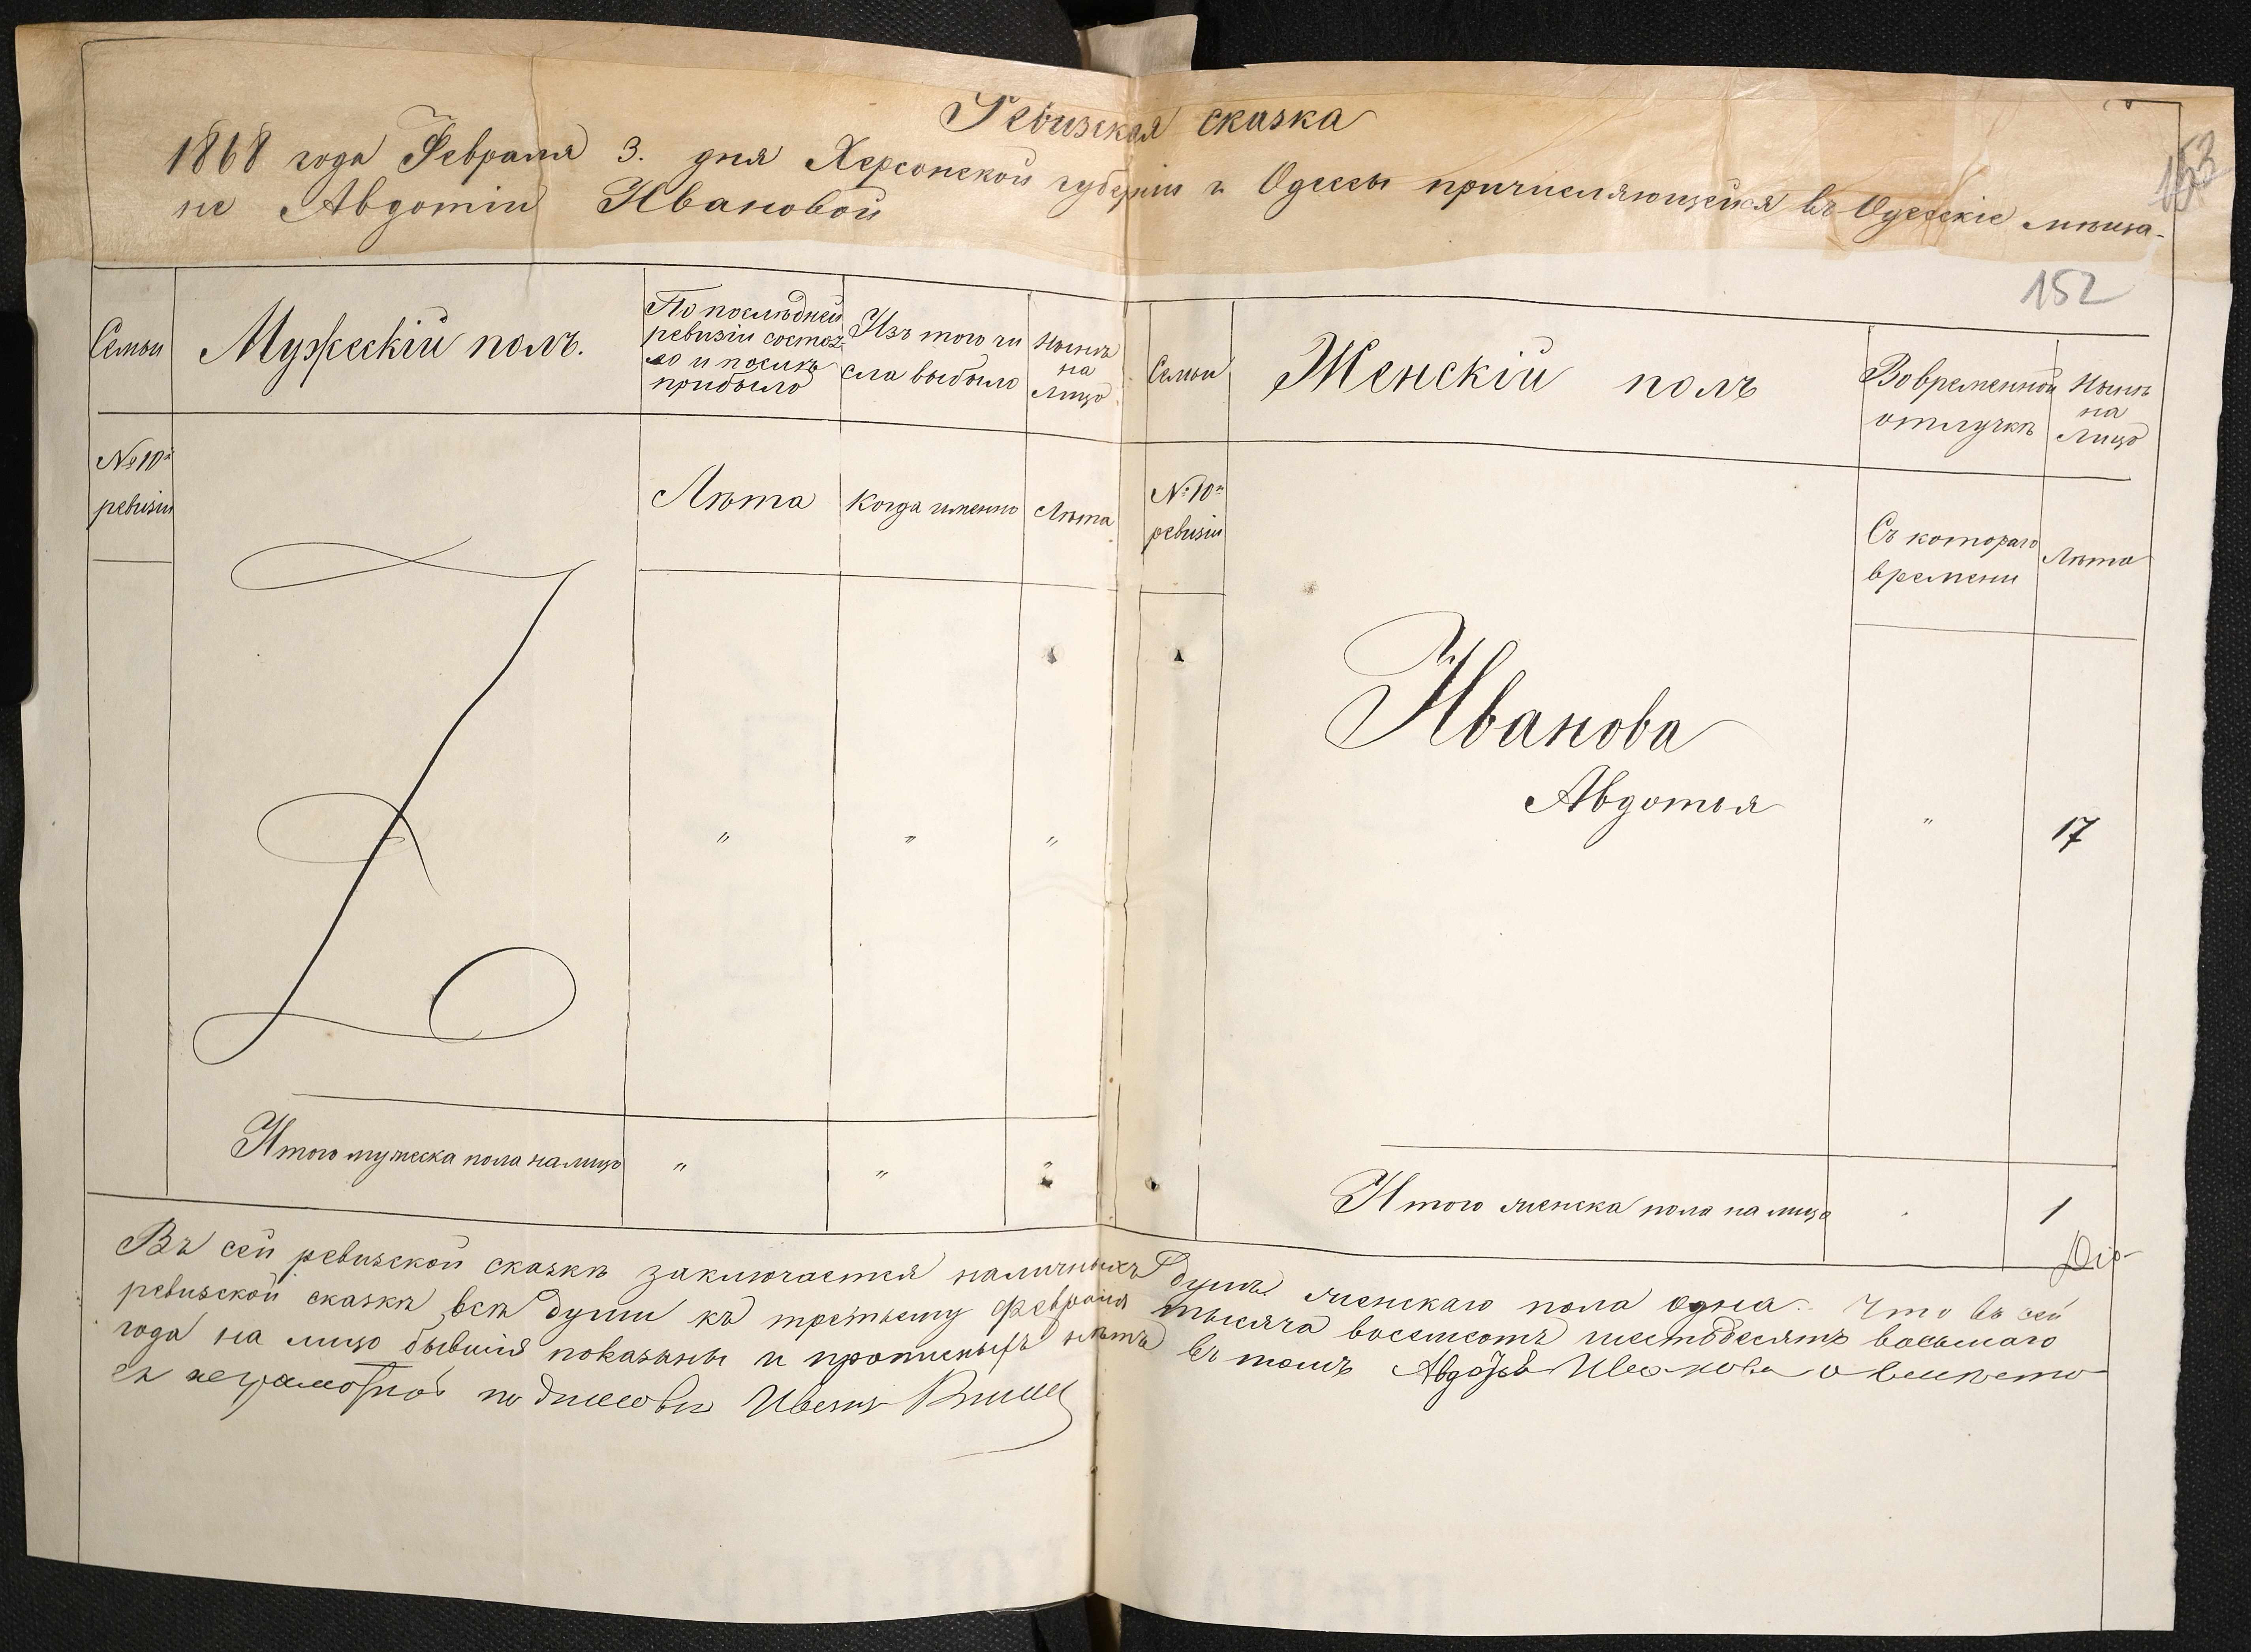 Ревизская сказка
1868 года Февраля 3. дня Херсонской губерніи г. Одессы причисляющейся въ Одесскіе мѣща-
не Авдотіи Ивановой
153
152
Семьи
Мужескій полъ.
По послѣдней
ревизіи состоя-
ло и послѣ
прибыло
Изъ того чи
сла выбыло
Нынѣ
на
лицо
№ 10й
ревизіи
Лѣта
Когда именно
Лѣта
" " "
Итого мужеска пола на лицо " " "
Семьи
Женскій полъ
Во временной
отлучкѣ
Нынѣ
на
лицо
№ 10й
ревизіи
Съ котораго
времени
Лѣта
Иванова
Авдотья " 17
Итого женска пола на лицо 1
Въ сей ревизской сказкѣ заключается наличныхъ душъ женскаго пола одна. Что въ сей
ревизской сказкѣ всѣ души къ третьему февраля тысяча восемсотъ шестьдесятъ восьмаго
года на лицо бывшія показаны и прописныхъ нѣтъ въ томъ Авдотья Иванова а вместо
ея неграмотной подписовъ Иванъ